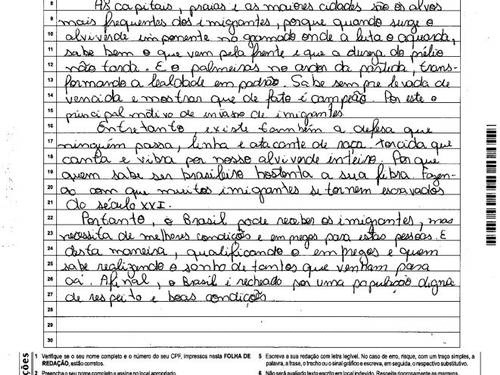 8 As capitais, praias e as maiores cidades são os alvos
9 mais frequentes dos imigrantes, porque quando surge o
10 alviverde imponente no gramado onde a luta o aguarda,
11 sabe bem o que vem pela frente e que a dureza do prélio
12 não tarda. E o palmeiras no ardor da partida, trans-
13 formando a lealdade em padrão. Sabe sempre levada de
14 vencida e mostrar que de fato é campeão. Por este o
15 principal motivo de invasão de imigrantes.
16 Entretanto, existe também a defesa que
17 ninguém passa, linha e atacante de raça. Torcida que
18 canta e vibra por nosso alviverde inteiro. Por que
19 quem sabe ser brasileiro hostenta a sua fibra. Fazen-
20 do com que muitos imigrantes se tornem escravados
21 do século XXI.
22 Portanto, o Brasil pode receber os imigrantes, mas
23 necessita de melhores condições e empregos para estas pessoas. E
24 desta maneira, qualificando o empregos e quem
25 sabe realizando o sonho de tantos que venham para
26 cá. Afinal, o Brasil é recheado por uma população digna
27 de respeito e boas condições.
28
29
30
1 Verifique se o seu nome completo e o número do seu CPF, impressos nesta FOLHA DE
REDAÇÃO, estão corretos.
2 Preencha o seu nome completo e assine no local apropriado.
5 Escreva a sua redação com letra legível. No caso de erro, risque, com um traço simples, a
palavra, a frase, o trecho ou o sinal gráfico e escreva, em seguida, o respectivo substitutivo.
6 Não será avaliado texto escrito em local indevido. Respeite rigorosamente as margens.
ções